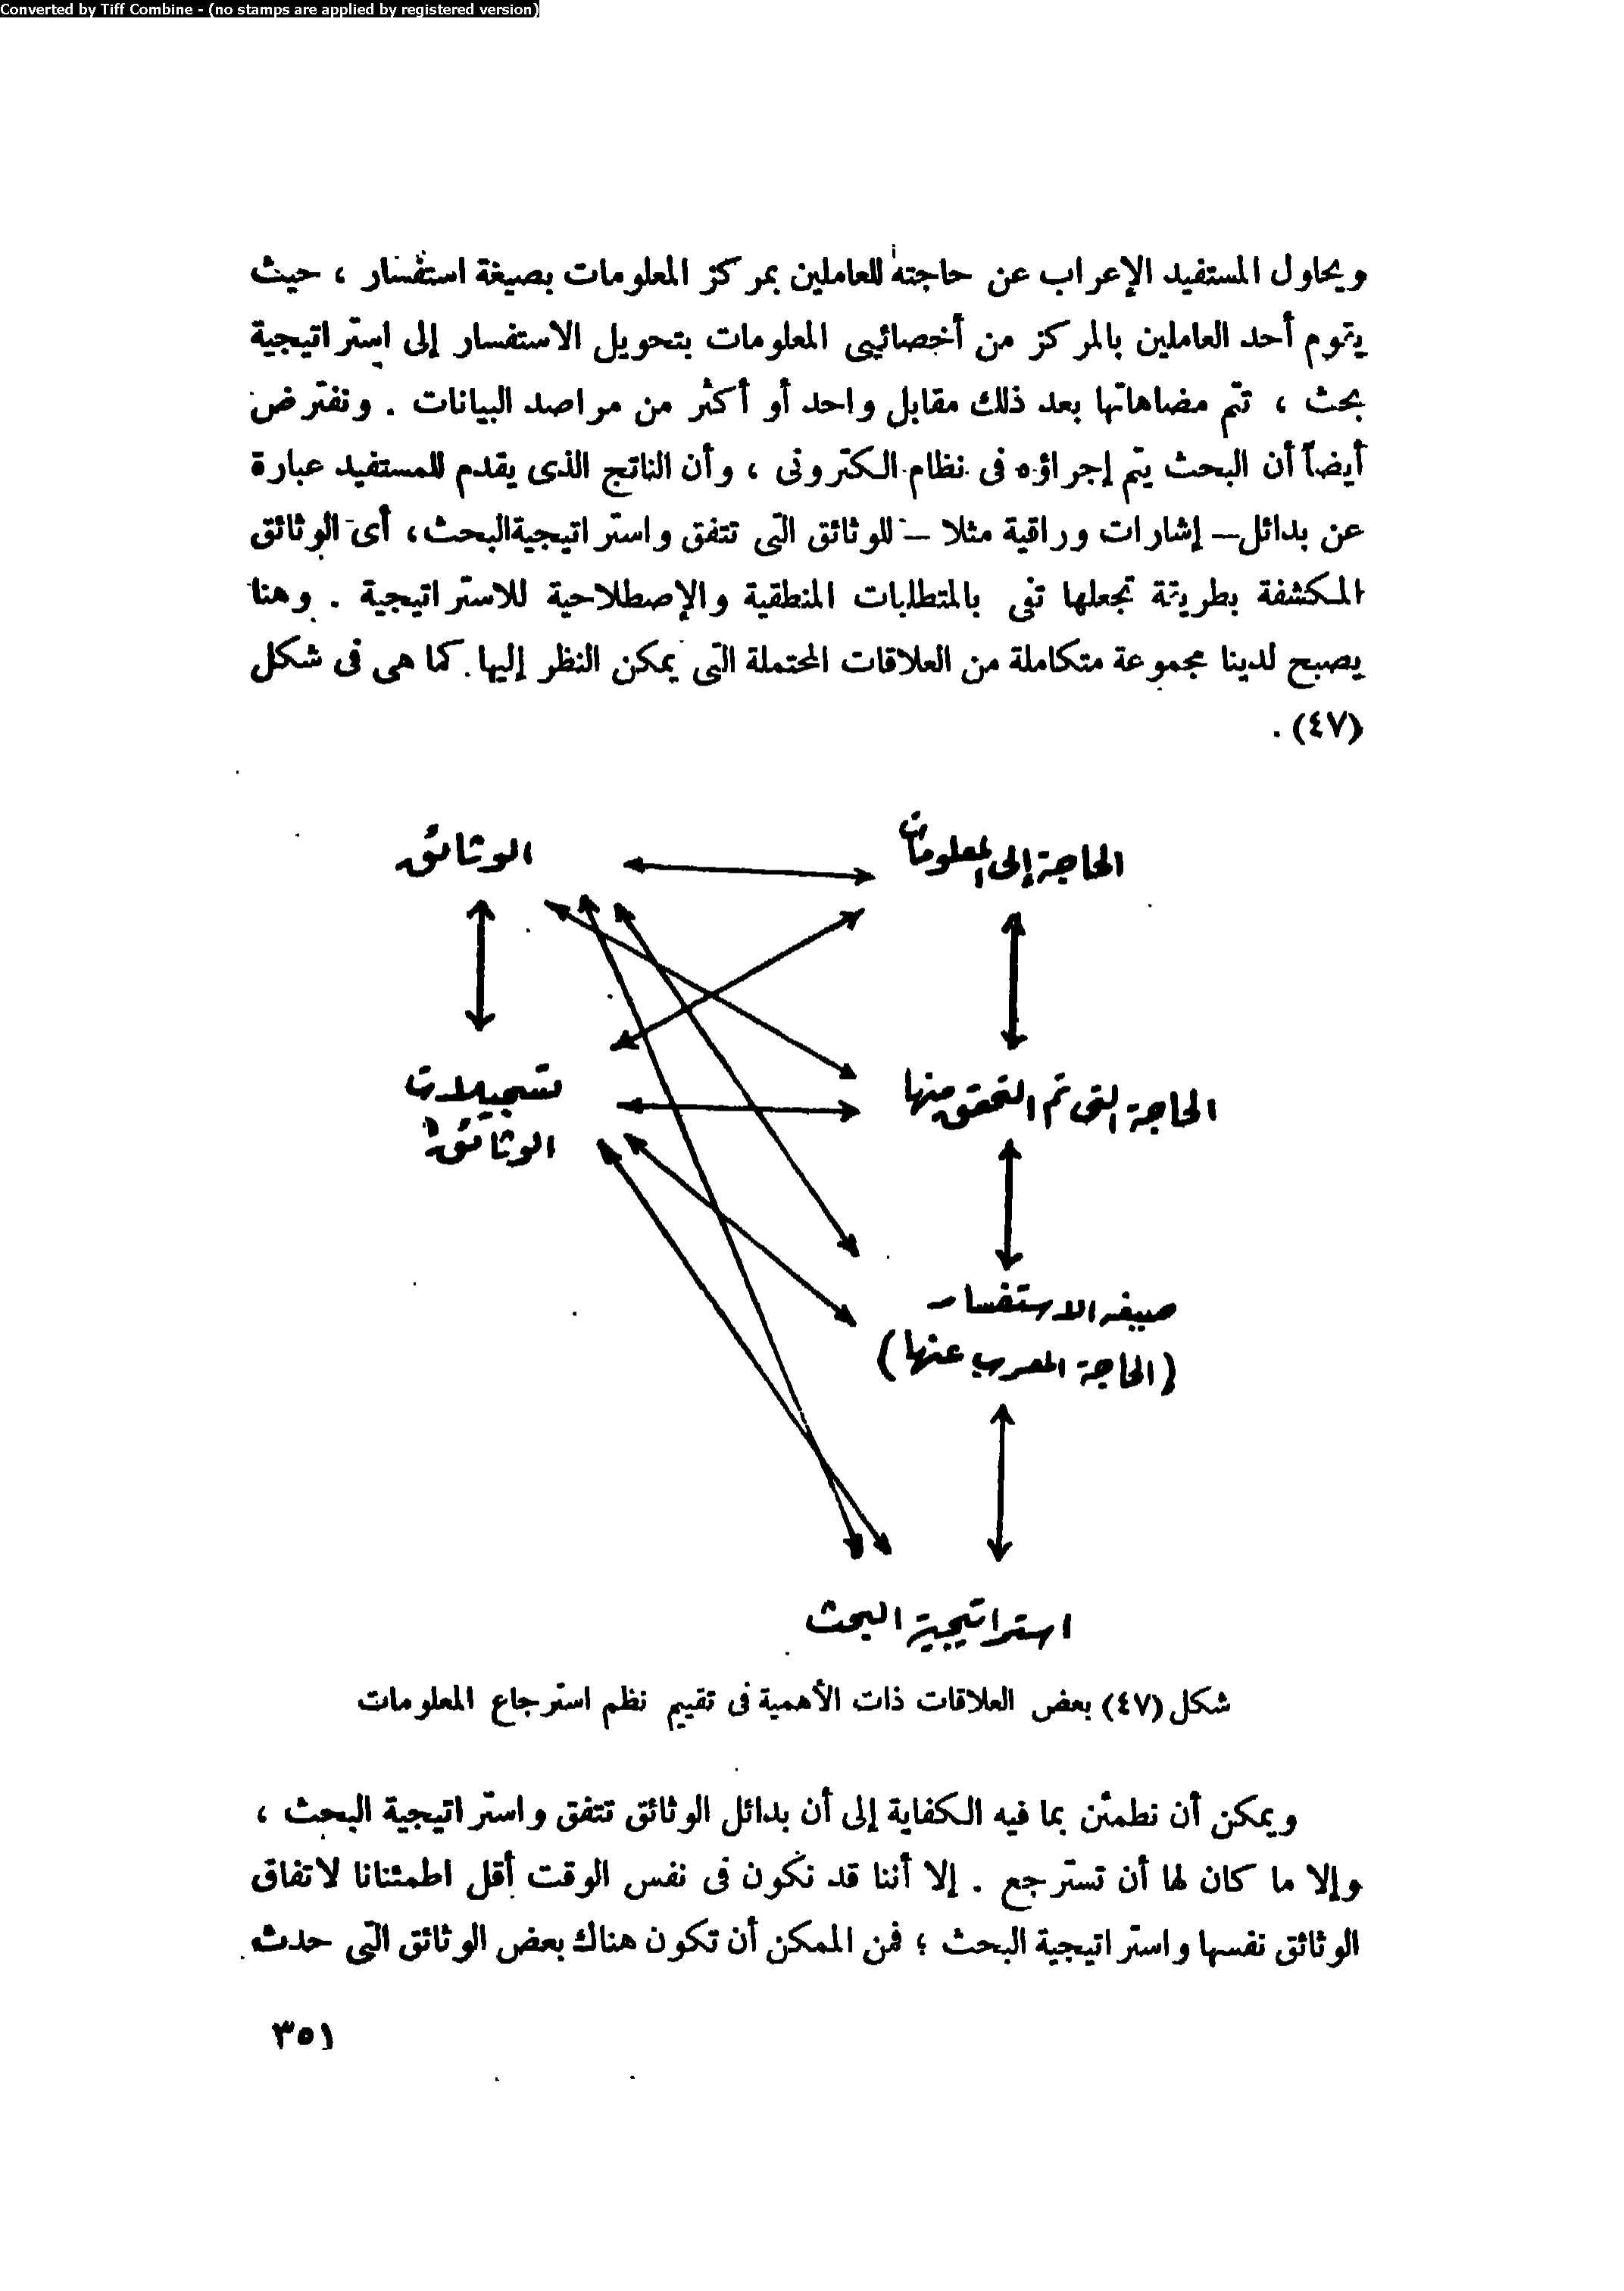 Converted by Tiff Combine - (no stamps are applied by registered version)
ويحاول المستفيد الإعراب عن حاجته للعاملين بمركز المعلومات بصيغة استفسار ، حيث
يقوم أحد العاملين بالمركز من أخصائيى المعلومات بتحويل الاستفسار إلى استراتيجية
بحث ، تتم مضاهاتها بعد ذلك مقابل واحد أو أكثر من مراصد البيانات . ونفترض
أيضاً أن البحث يتم إجراؤه فى نظام الكترونى ، وأن الناتج الذى يقدم للمستفيد عبارة
عن بدائل – إشارات وراقية مثلا – للوثائق التى تتفق واستراتيجية البحث ، أى الوثائق
المكشفة بطريقة تجعلها تفى بالمتطلبات المنطقية والإصطلاحية للاستراتيجية . وهنا
يصبح لدينا مجموعة متكاملة من العلاقات المحتملة التى يمكن النظر إليها كما هى فى شكل
(٤٧) .
الحاجة إلى المعلومات
الوثائق
الحاجة التى تم التحقق منها
تسجيلات
الوثائق
صيغة الاستفسار
(الحاجة المعرب عنها)
استراتيجية البحث
شكل (٤٧) بعض العلاقات ذات الأهمية فى تقييم نظم استرجاع المعلومات
ويمكن أن نطمئن بما فيه الكفاية إلى أن بدائل الوثائق تتفق واستراتيجية البحث ،
وإلا ما كان لها أن تسترجع . إلا أننا قد نكون فى نفس الوقت أقل اطمئنانا لاتفاق
الوثائق نفسها واستراتيجية البحث ؛ فمن الممكن أن تكون هناك بعض الوثائق التى حدث
٣٥١